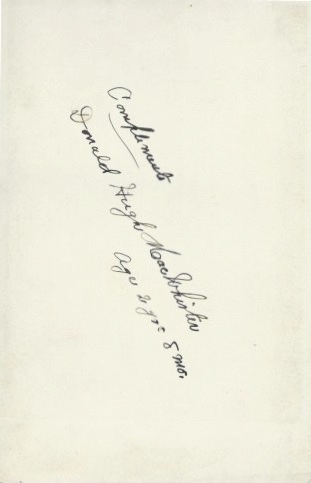 Compliments
Donald Hugh MacWhirter
age 2 yrs 8 mo.